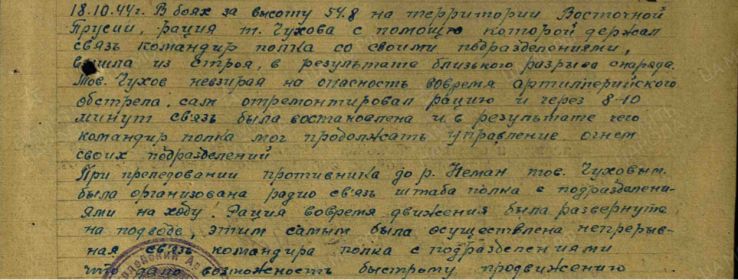 18.10.44г. В боях за высоту 54.8 на территории Восточной
Прусии, рация т. Чухова с помощью которой держал
связь командир полка со своими подразделениями,
вышла из строя, в результате близького разрыва снаряда.
Тов. Чухов невзирая на опасность вовремя артиллерийского
обстрела, сам отремонтировал рацию и через 8-10
минут связь была востановлена и в результате чего
командир полка мог продолжать управление огнем
своих подразделений
При преледовании противника до р. Неман тов. Чуховым
была организована радио связь штаба полка с подразделени-
ями на ходу. Рация вовремя движения была развернута
на подводе, этим самым была осуществлена непрерыв-
ная связь командира полка с подразделениями
что дало возможность быстрому продвижению